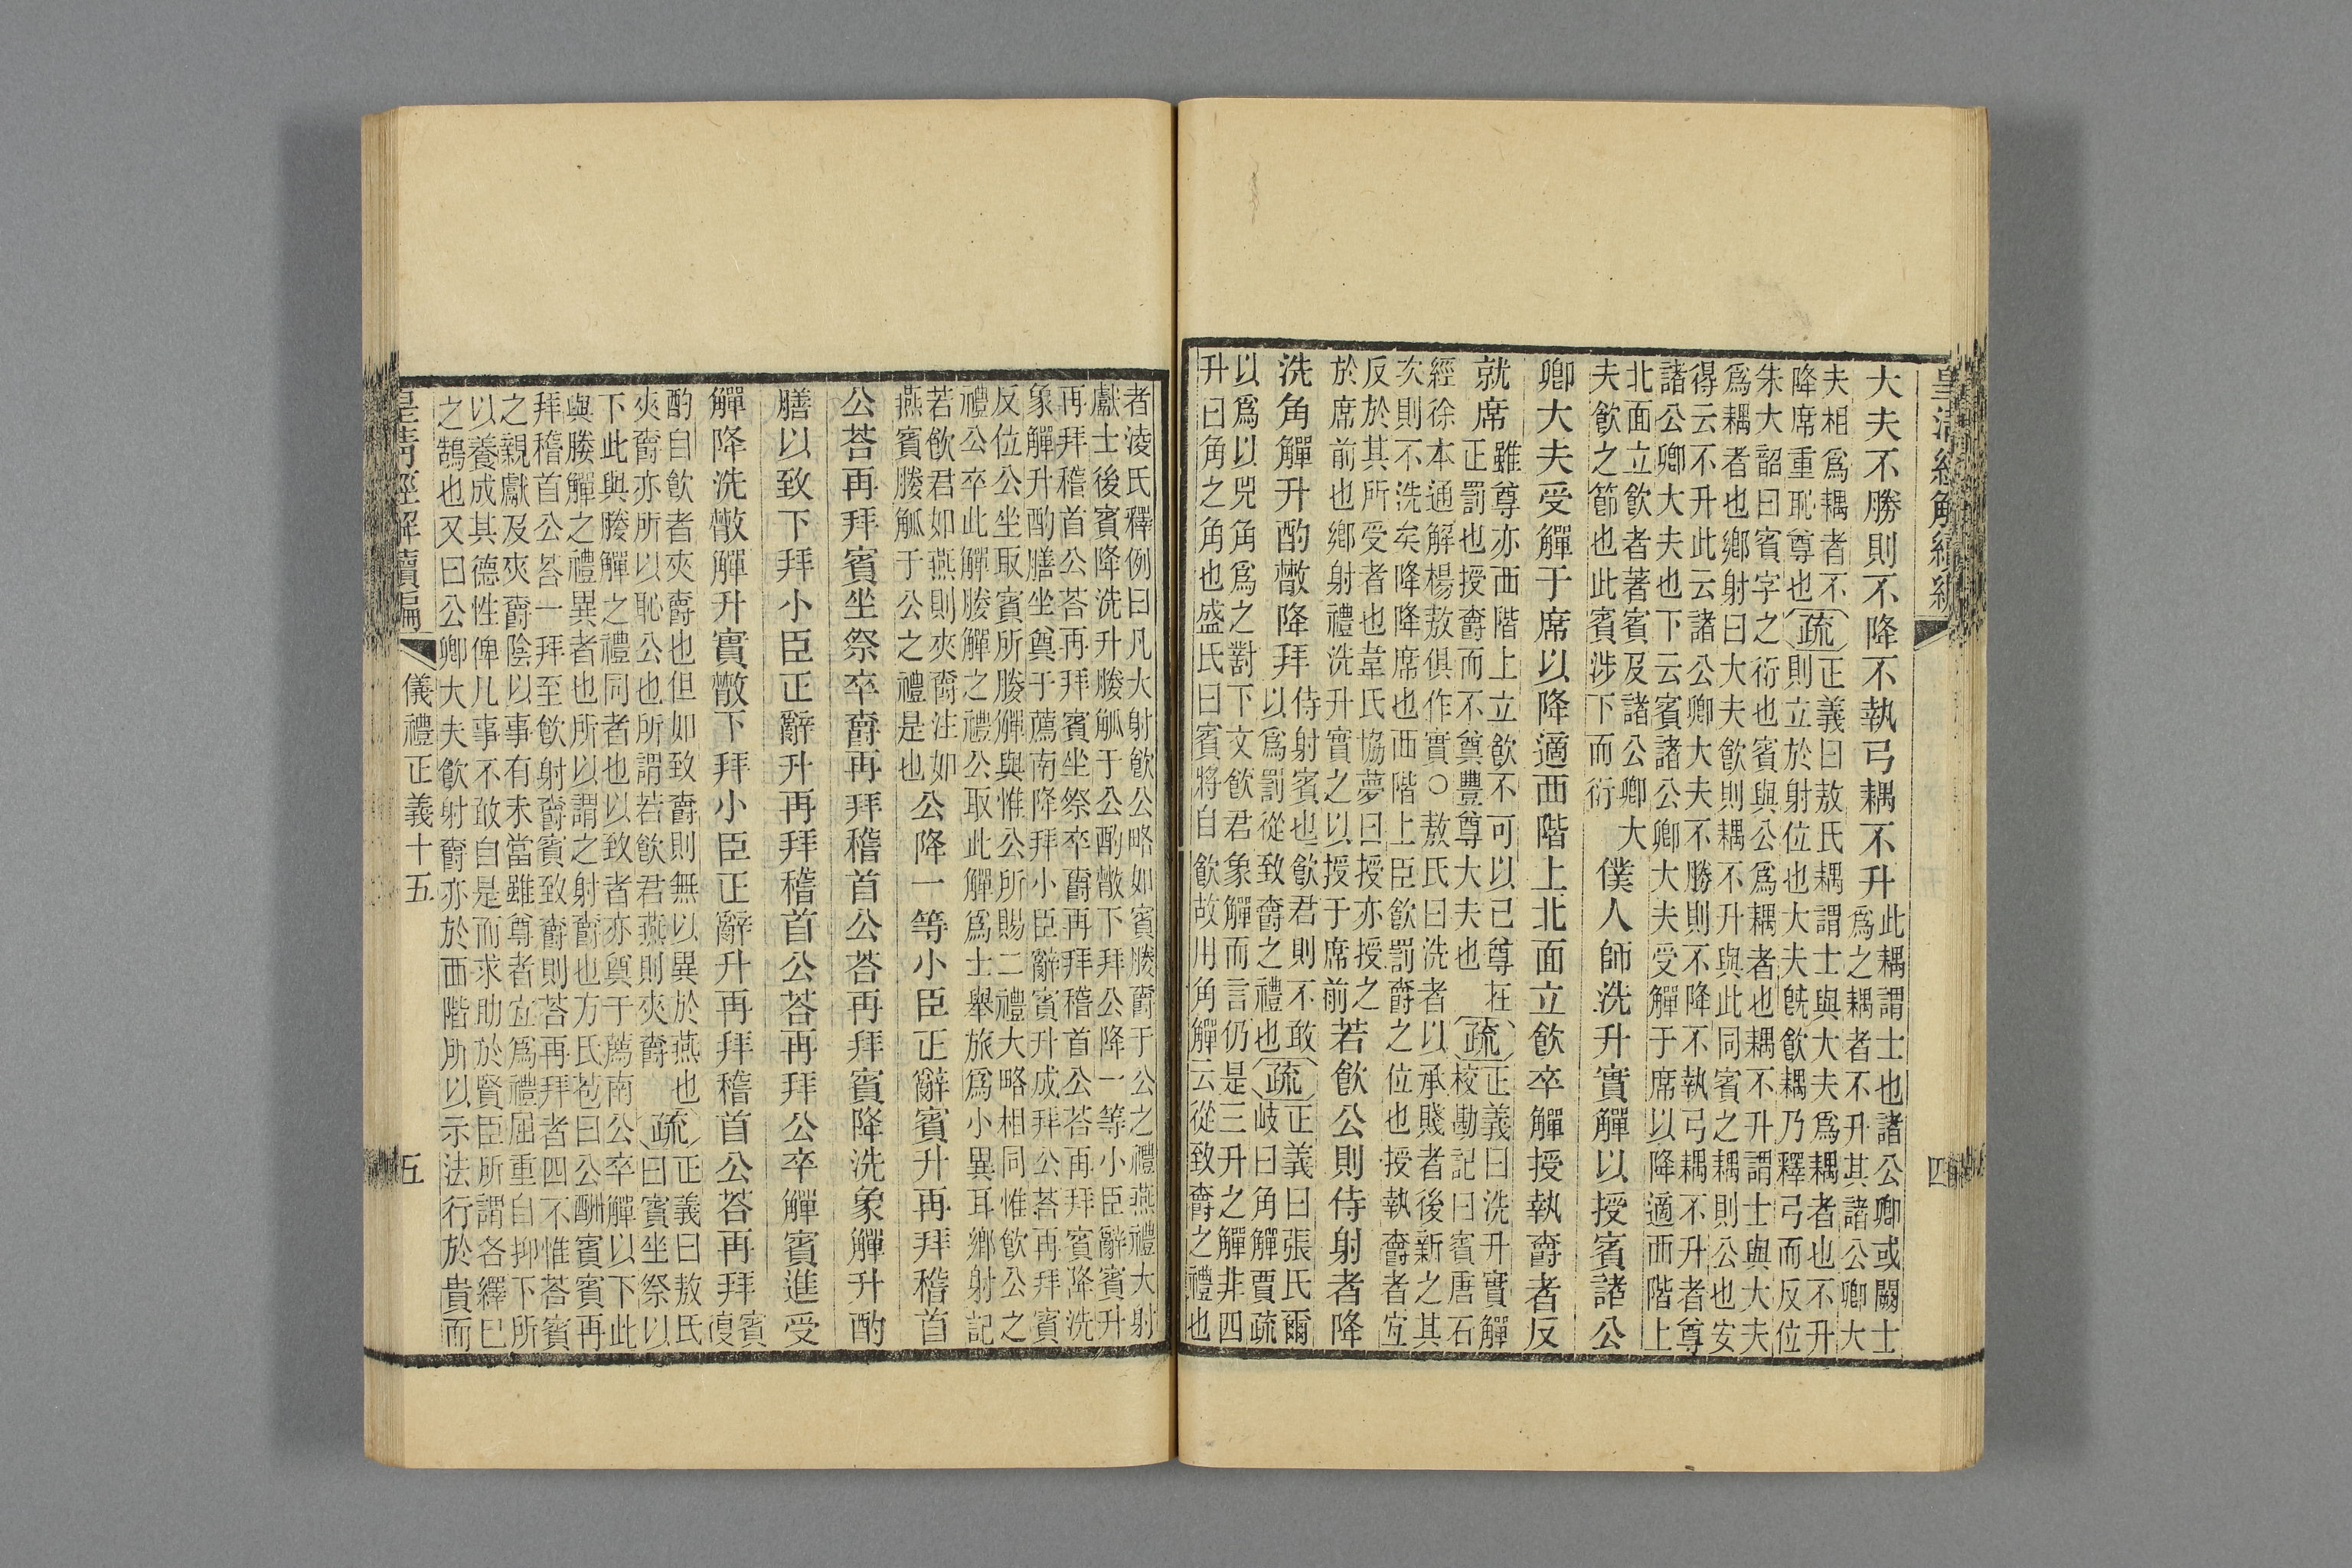 皇淸經解續編
四
大夫不勝則不降不執弓耦不升
此耦謂士也諸公卿或闕士
爲之耦者不升其諸公卿大
夫相爲耦者不
降席重恥尊也
疏
正義曰敖氏耦謂士與大夫爲耦者也不升
則立於射位也大夫旣飮耦乃釋弓而反位
朱大韶曰賓字之衍也賓與公爲耦者也耦不升謂士與大夫
爲耦者也鄉射曰大夫飮則耦不升與此同賓之耦則公也安
得云不升此云諸公卿大夫不勝則不降不執弓耦不升者尊
諸公卿大夫也下云賓諸公卿大夫受觶于席以降適西階上
北面立飮者著賓及諸公卿大
夫飮之節也此賓涉下而衍
僕人師洗升實觶以授賓諸公
卿大夫受觶于席以降適西階上北面立飮卒觶授執爵者反
就席
雖尊亦西階上立飮不可以已尊枉
正罰也授爵而不奠豐尊大夫也
疏
正義曰洗升實觶
校勘記曰賓唐石
經徐本通解楊敖俱作實○敖氏曰洗者以承賤者後新之其
次則不洗矣降降席也西階上臣飮罰爵之位也授執爵者宜
反於其所受者也韋氏協夢曰授亦授之
於席前也鄉射禮洗升實之以授于席前
若飮公則侍射者降
洗角觶升酌散降拜
侍射賓也飮君則不敢
以爲罰從致爵之禮也
疏
正義曰張氏爾
岐曰角觶賈疏
以爲以兕角爲之對下文飮君象觶而言仍是三升之觶非四
升曰角之角也盛氏曰賓將自飮故用角觶云從致爵之禮也
者淩氏釋例曰凡大射飮公略如賓媵爵于公之禮燕禮大射
獻士後賓降洗升媵觚于公酌散下拜公降一等小臣辭賓升
再拜稽首公荅再拜賓坐祭卒爵再拜稽首公荅再拜賓降洗
象觶升酌膳坐奠于薦南降拜小臣辭賓升成拜公荅再拜賓
反位公坐取賓所媵觶與惟公所賜二禮大略相同惟飮公之
禮公卒此觶媵觶之禮公取此觶爲士舉旅爲小異耳鄉射記
若飮君如燕則夾爵注如
燕賓媵觚于公之禮是也
公降一等小臣正辭賓升再拜稽首
公荅再拜賓坐祭卒爵再拜稽首公荅再拜賓降洗象觶升酌
膳以致下拜小臣正辭升再拜稽首公荅再拜公卒觶賓進受
觶降洗散觶升實散下拜小臣正辭升再拜稽首公荅再拜
賓
復
酌自飮者夾爵也但如致爵則無以異於燕也
夾爵亦所以恥公也所謂若飮君燕則夾爵
疏
正義曰敖氏
曰賓坐祭以
下此與媵觶之禮同者也以致者亦奠于薦南公卒觶以下此
與媵觶之禮異者也所以謂之射爵也方氏苞曰公酬賓賓再
拜稽首公荅一拜至飮射爵賓致爵則荅再拜者四不惟荅賓
之親獻及夾爵陰以事有未當雖尊者宜爲禮屈重自抑下所
以養成其德性俾凡事不敢自是而求助於賢臣所謂各繹已
之鵠也又曰公卿大夫飮射爵亦於西階所以示法行於貴而
皇淸經解續編
儀禮正義十五
五